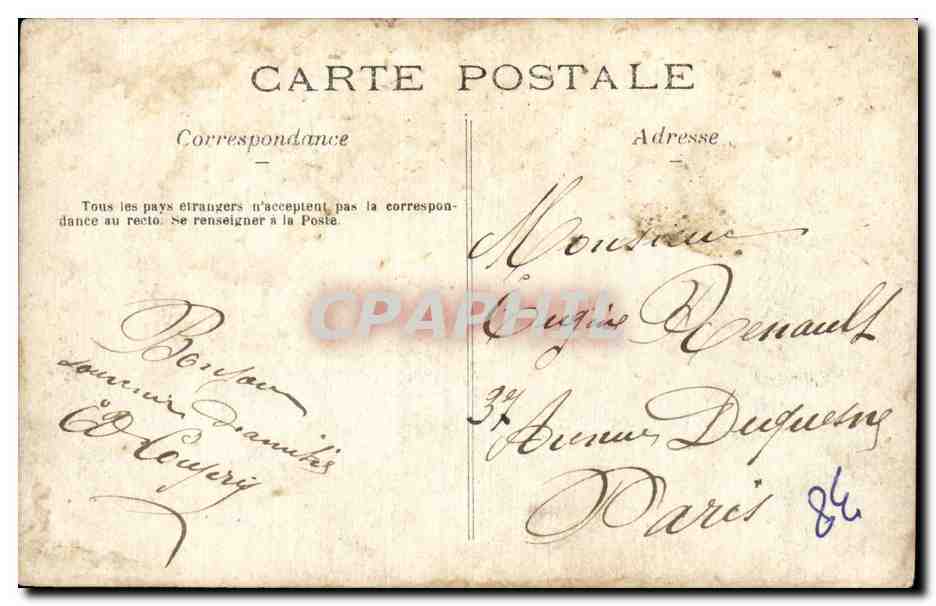 CARTE POSTALE
Correspondance
Adresse
Tous les pays étrangers n'acceptent pas la correspon-
dance au recto. Se renseigner à la Poste.
CPAPHIL
Monsieur
Eugène Renault
37 Avenue Duquesne
Paris
84
Bonjour
souvenir d'amitié